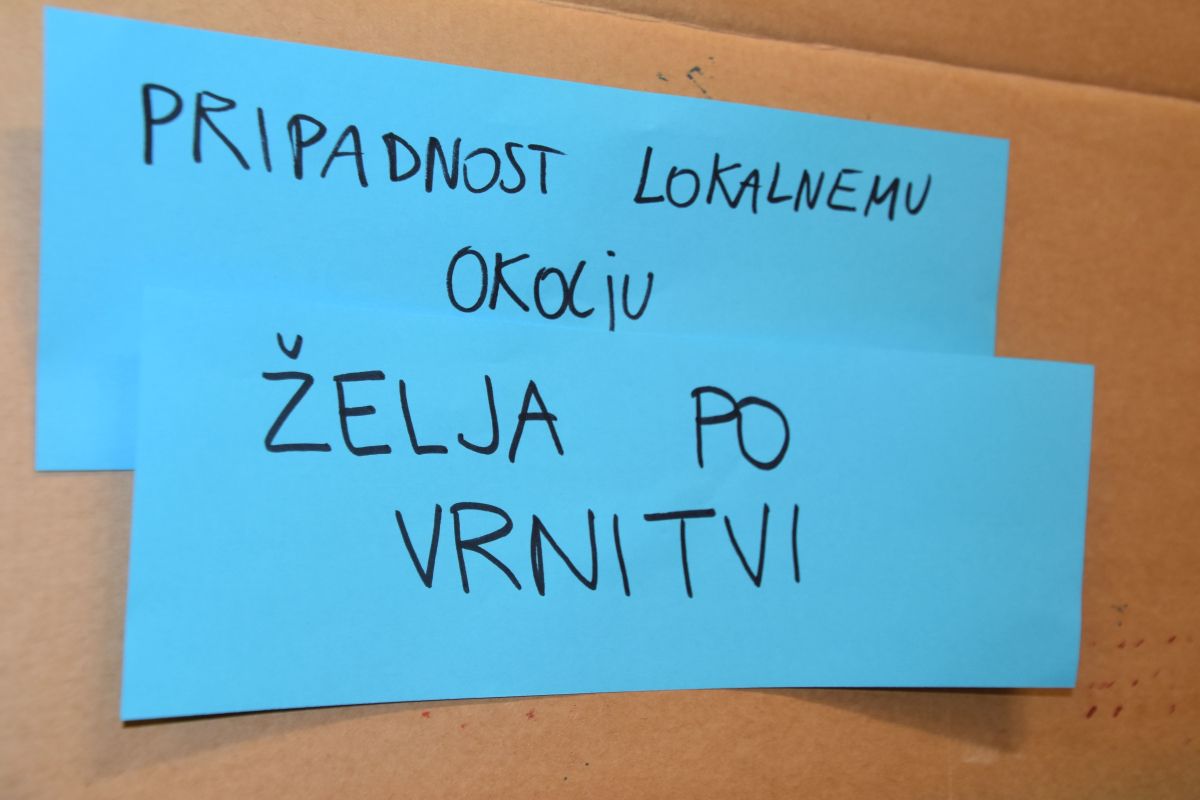 PRIPADNOST LOKALNEMU
OKOLJU
ŽELJA PO
VRNITVI